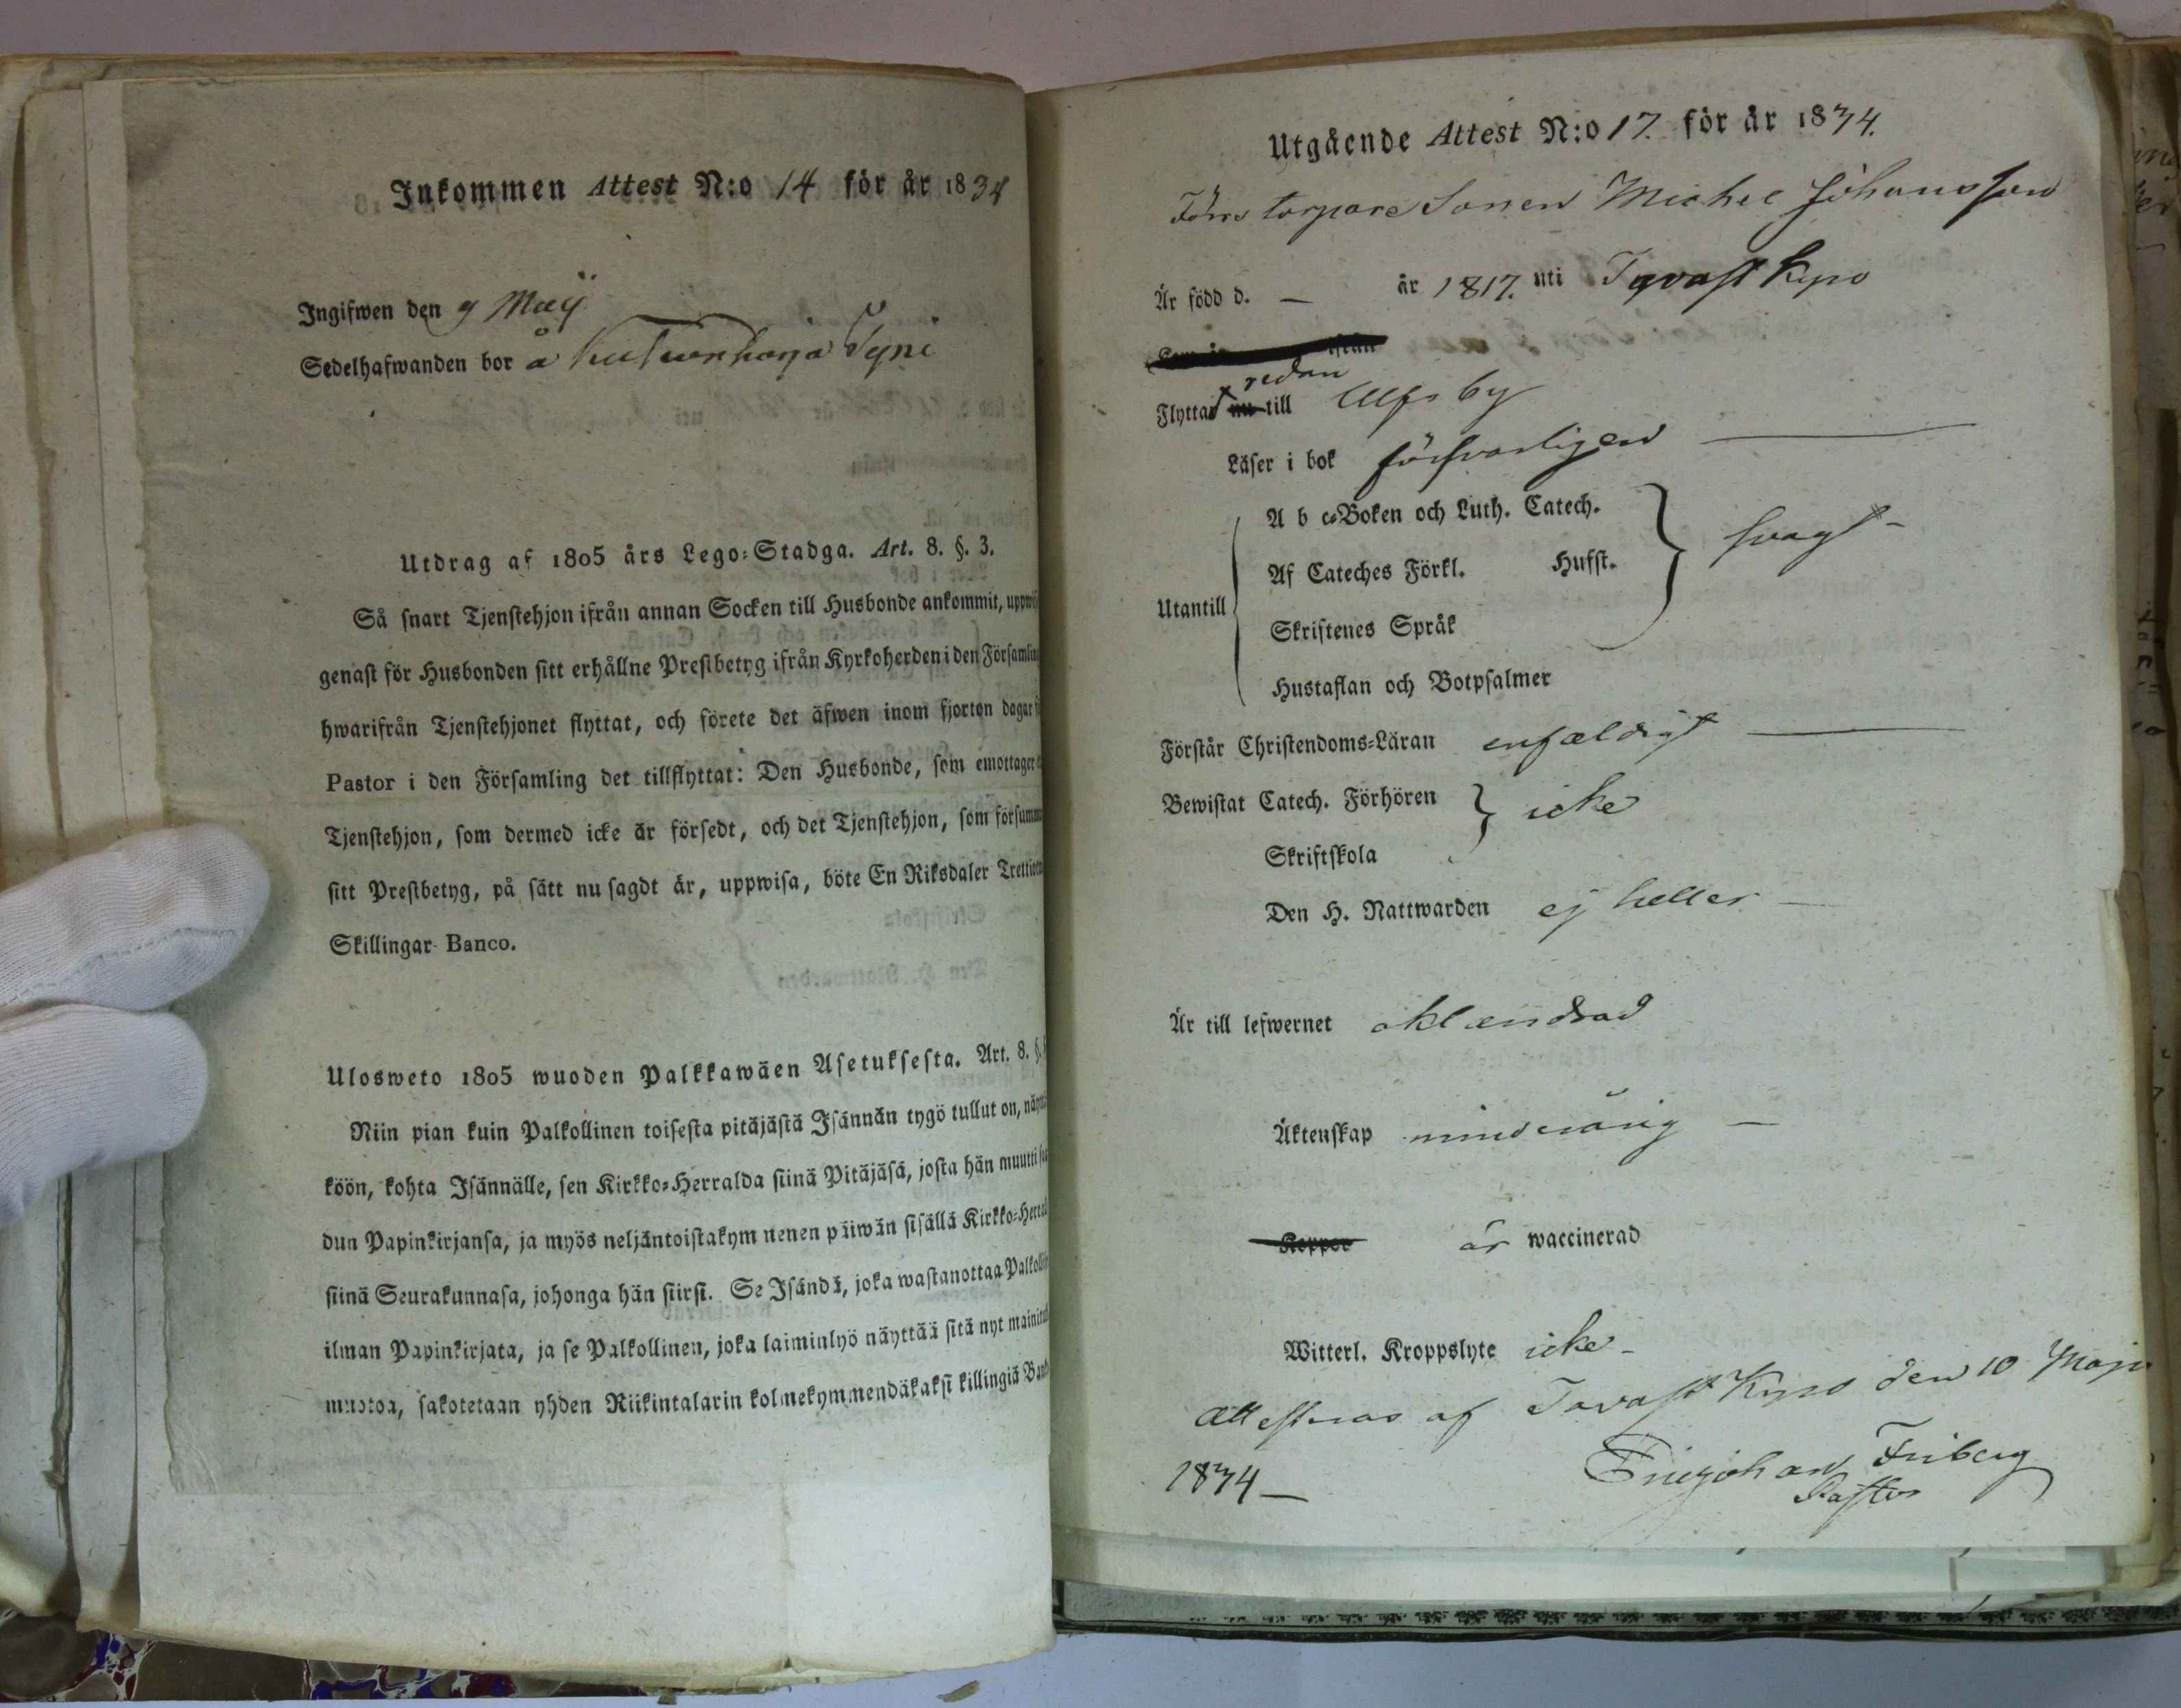 Inkommen Attest N:o 14 för år 1834
Ingifwen den 9 Maij
Sedelhafwanden bor å
Utdrag af 1805 års Lego-Stadga. Art. 8. §. 3.
Så snart Tjenstehjon ifrån annan Socken till Husbonde ankommit,
genast för Husbonden sitt erhållne Prestbetyg ifrån Kyrkoherden i den Församling
hwarifrån Tjenstehjonet flyttat, och förete det äfwen inom fjorton dagar
Pastor i den Församling det tillflyttat: Den Husbonde, som emottager
Tjenstehjon, som dermed icke är försedt, och det Tjenstehjon, som försumm
sitt Prestbetyg, på sätt nu sagdt är, uppwisa, böte En Riksdaler
Skillingar Banco.
Ulosweto 1805 wuoden Palkkawäen Asetuksesta. Art. 8. §.
Niin pian kuin Palkollinen toisesta pitäjästä Isännän tygö tullut on,
köön, kohta Isännälle, sen Kirkko-Herralda siinä Pitäjäsä, josta hän muutti
dun Papinkirjansa, ja myös neljäntoistakymmenen päiwän sisällä Kirkko-
siinä Seurakunnasa, johonga hän siirsi. Se Isändä, joka wastanottaa
ilman Papinkirjata, ja se Palkollinen, joka laiminlyö näyttää sitä nyt
muotoa, sakotetaan yhden Riikintalarin kolmekymmendäkaksi killingiä
Utgående Attest N:o 17. för år 1834.
Förre torpare Sonen Michel Johansson
Är född d. — år 1817. uti Tavast Kyro
redan
Flyttad nu till Ulfsby
Läser i bok försvarligen
A b c-Boken och Luth. Catech.
Af Cateches Förkl. Husst. svagt
Utantill
Skriftenes Språk
Hustaflan och Botpsalmer
Förstår Christendoms-Läran enfaldigt
Bewistat Catech. Förhören icke
Skriftskola
Den H. Nattwarden ej heller
Är till lefwernet oklandrad
Äktenskap minderårig
Koppor är waccinerad
Witterl. Kroppslyte icke
Attesteras af Tavast Kyro den 10 Maji
1834
Friberg
Pastor